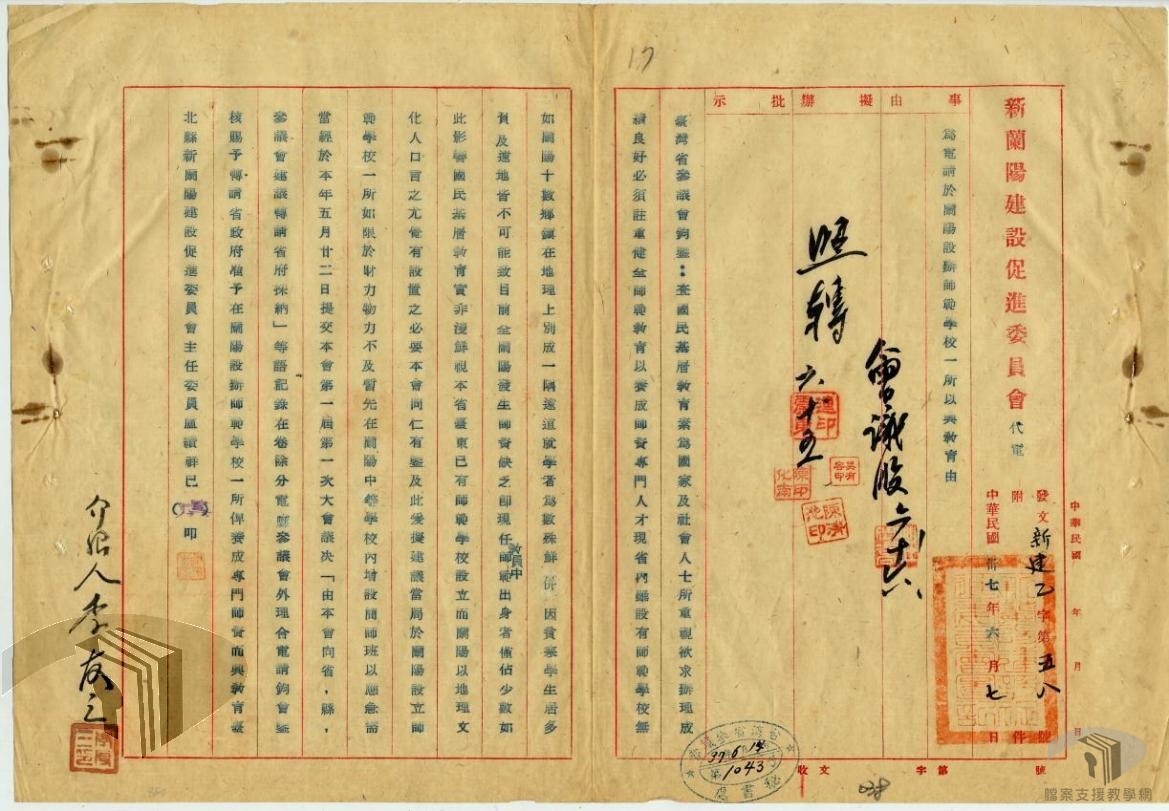 17
新蘭陽建設促進委員會 代電
中華民國 年 月 日
發文新建乙字第五八號
附 件
中華民國卅七年六月七日
事由
擬辦
批示
為電請於蘭陽設辦師範學校一所以興教育由
會議股 六十六
照轉 六十五
臺灣省參議會鈞鑒：查國民基層教育素為國家及社會人士所重視欲求辦理成
績良好必須註重健全師範教育以養成師資專門人才現省內雖設有師範學校無
如蘭陽十數鄉鎮在地理上別成一隅遠道就學者為數殊鮮 併因貧寒學生居多
負及遠地皆不可能致目前全蘭陽發生師資缺乏即現任教員中師範出身者僅佔少數如
此影響國民基層教育實非淺鮮視本省臺東已有師範學校設立而蘭陽以地理文
化人口言之尤覺有設置之必要本會同仁有鑒及此爰擬建議當局於蘭陽設立師
範學校一所如限於財力物力不及暫先在蘭陽中等學校內增設簡師班以應急需
當經於本年五月廿二日提交本會第一屆第一次大會議決「由本會向省，縣，
參議會建議轉請省府採納」等語記錄在卷除分電縣參議會外理合電請鈞會鑒
核賜予轉請省政府准予在蘭陽設辦師範學校一所俾養成專門師資而興教育臺
北縣新蘭陽建設促進委員會主任委員盧纘祥已 叩
介紹人李友三
收文 字第 號
臺灣省參議會
37.6.14
第1043
秘書處
檔案支援教學網